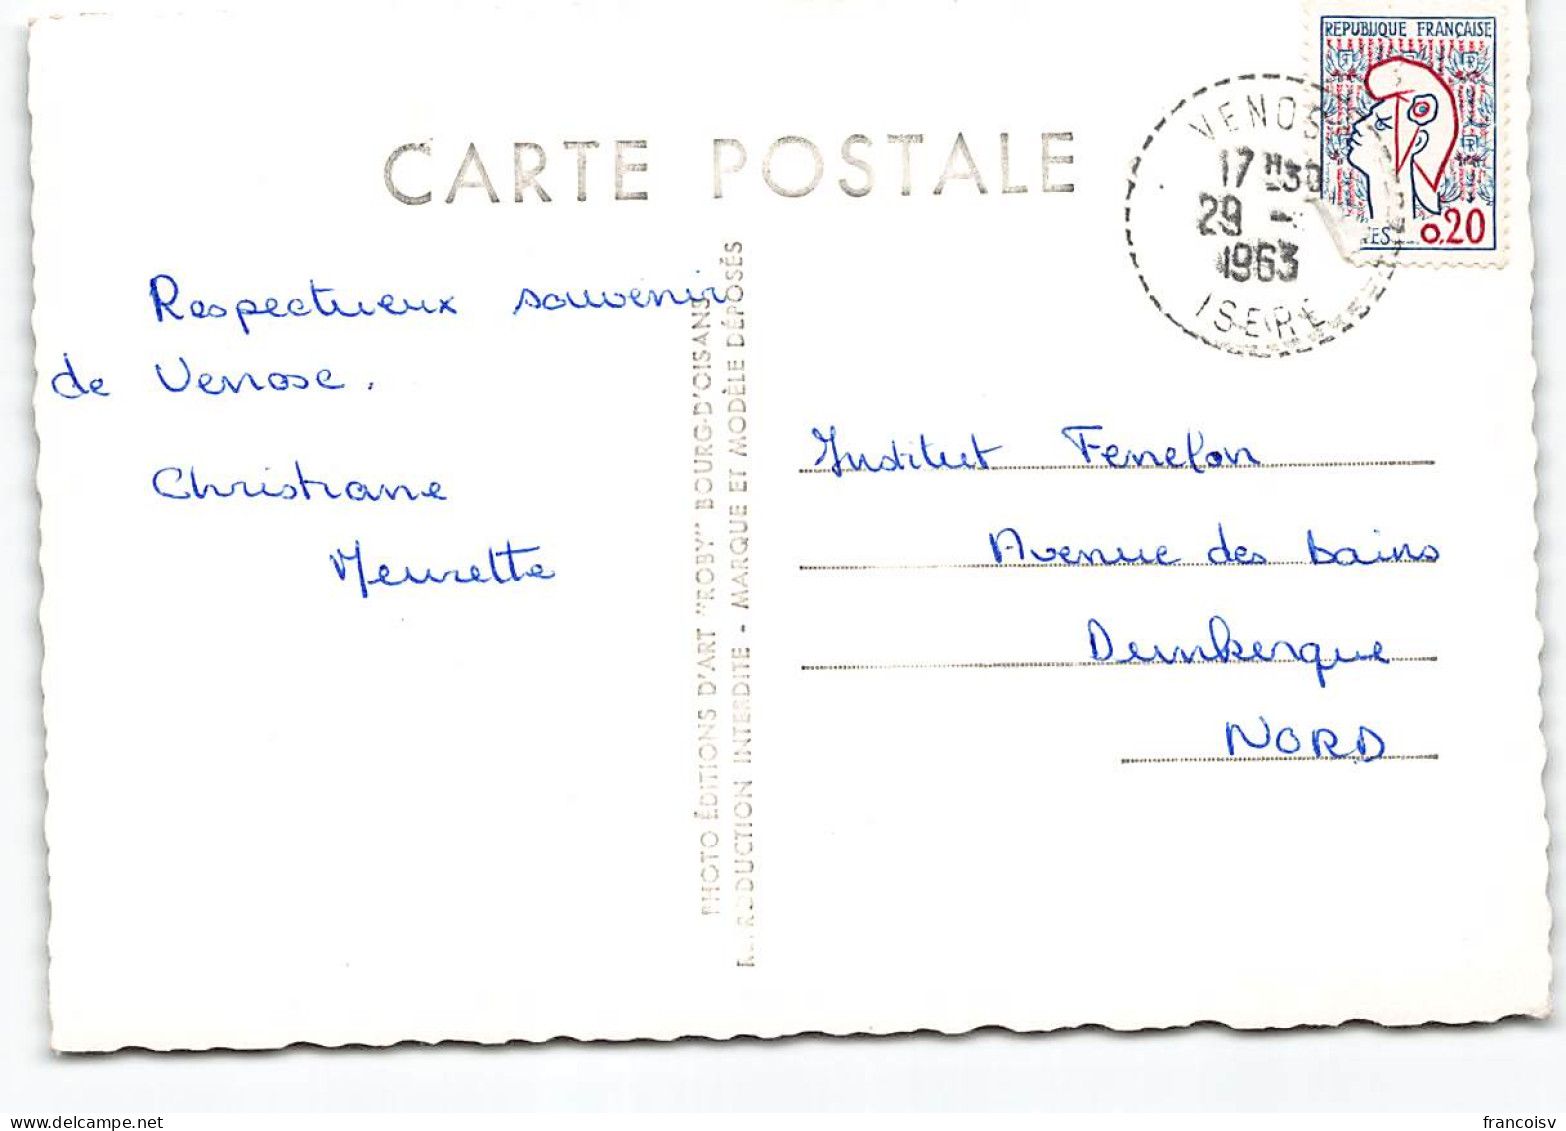 REPUBLIQUE FRANÇAISE
0,20
VENOS
17 H 30
29 -
1963
ISERE
CARTE POSTALE
Respectueux souvenir
de Venosc.
Christiane
Meurette
PHOTO ÉDITIONS D'ART "ROBY" BOURG-D'OISANS
REPRODUCTION INTERDITE - MARQUE ET MODÈLE DÉPOSÉS
Institut Fenelon
Avenue des bains
Dunkerque
NORD
www.delcampe.net
francoisv